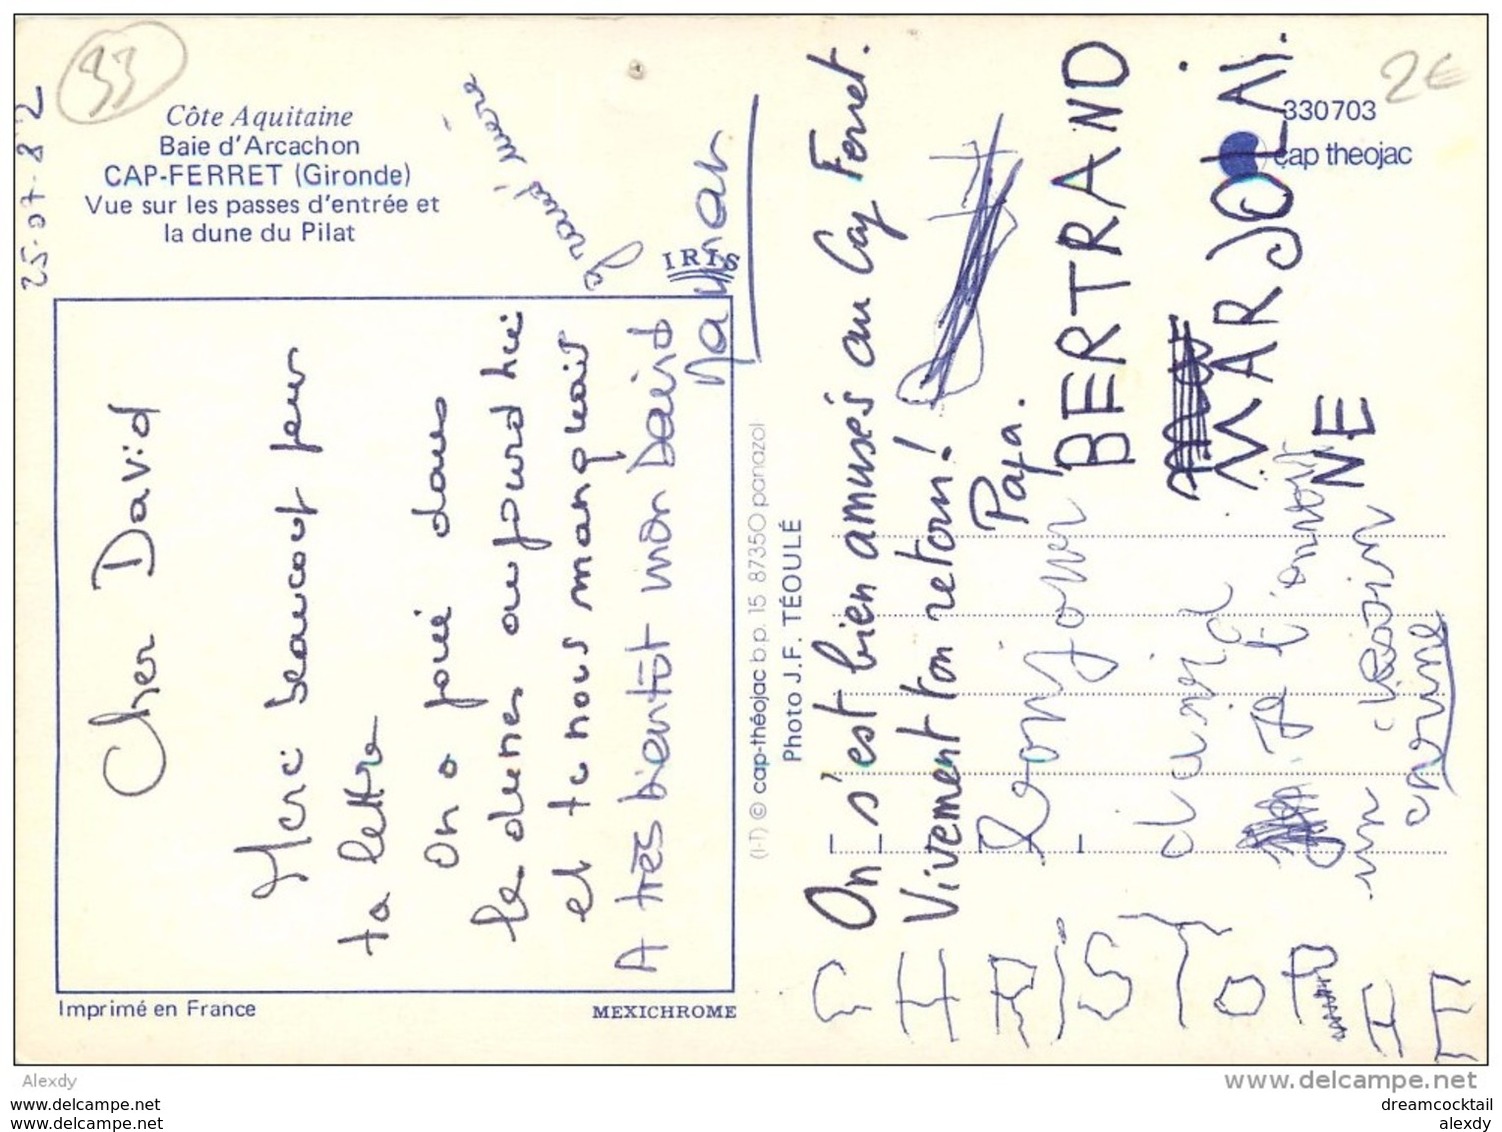 33
2€
25-07-82
Côte Aquitaine
Baie d'Arcachon
CAP-FERRET (Gironde)
Vue sur les passes d'entrée et
la dune du Pilat
330703
cap theojac
IRIS
Cher David
Merci beaucoup pour
ta lettre
On a joué dans
les dunes aujourd'hui
et tu nous manquais
A très bientôt mon David
Maman
grand'mère
(I-T) © cap-théojac b.p. 15 87350 panazol
Photo J.F. TÉOULÉ
On s'est bien amusés au Cap Ferret.
Vivement ton retour!
Papa.
BERTRAND
MARJOLAI
NE
bonjour
david
je t'envoit
un
carine
CHRISTOPHE
Imprimé en France
MEXICHROME
Alexdy
www.delcampe.net
www.delcampe.net
www.delcampe.net
dreamcocktail
alexdy